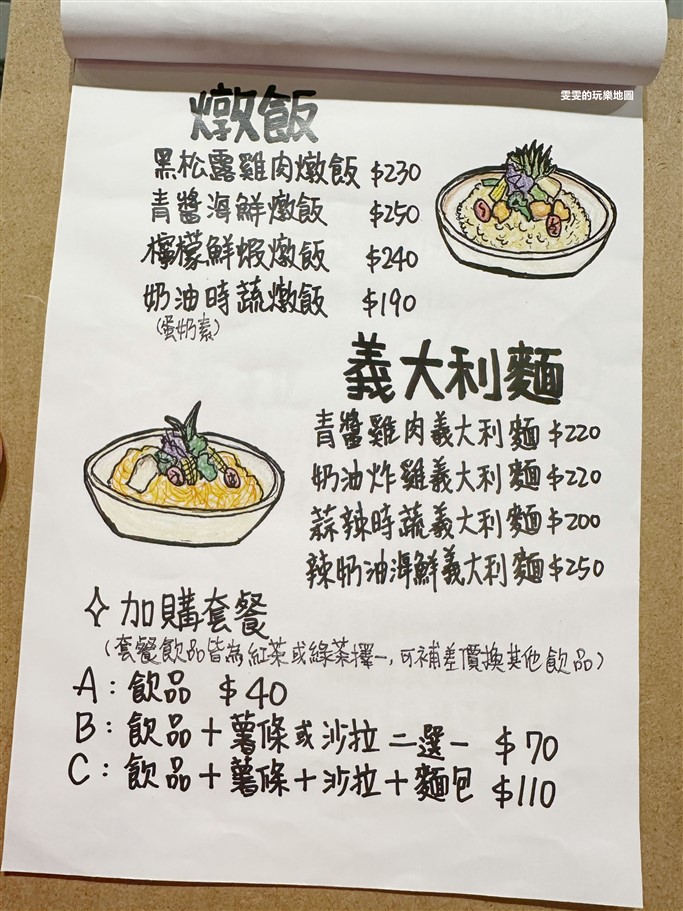 雯雯的玩樂地圖
燉飯
黑松露雞肉燉飯 $230
青醬海鮮燉飯 $250
檸檬鮮蝦燉飯 $240
奶油時蔬燉飯 $190
(蛋奶素)
義大利麵
青醬雞肉義大利麵 $220
奶油炸雞義大利麵 $220
蒜辣時蔬義大利麵 $200
辣奶油海鮮義大利麵 $250
✧加購套餐
(套餐飲品皆為紅茶或綠茶擇一,可補差價換其他飲品)
A:飲品 $40
B:飲品+薯條或沙拉二選一 $70
C:飲品+薯條+沙拉+麵包 $110